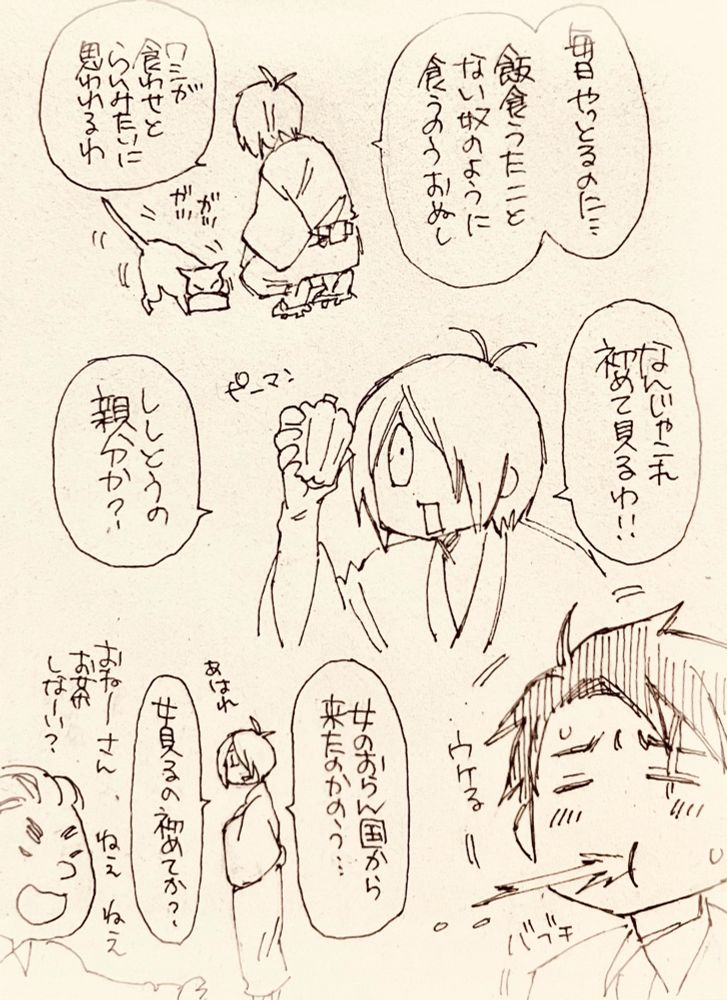 毎日やっとるのに…
飯食うたこと
ない奴のように
食うのうおぬし
ワシが
食わせと
らんみたいに
思われるわ
ガッ
ガッ
なんじゃこれ
初めて見るわ!!
ピーマン
ししとうの
親分か?
ウケる
バブチ
女のおらん国から
来たのかのう…
あはれ
女見るの初めてか?
おねーさん、ねぇねぇ
お茶
しなーい?